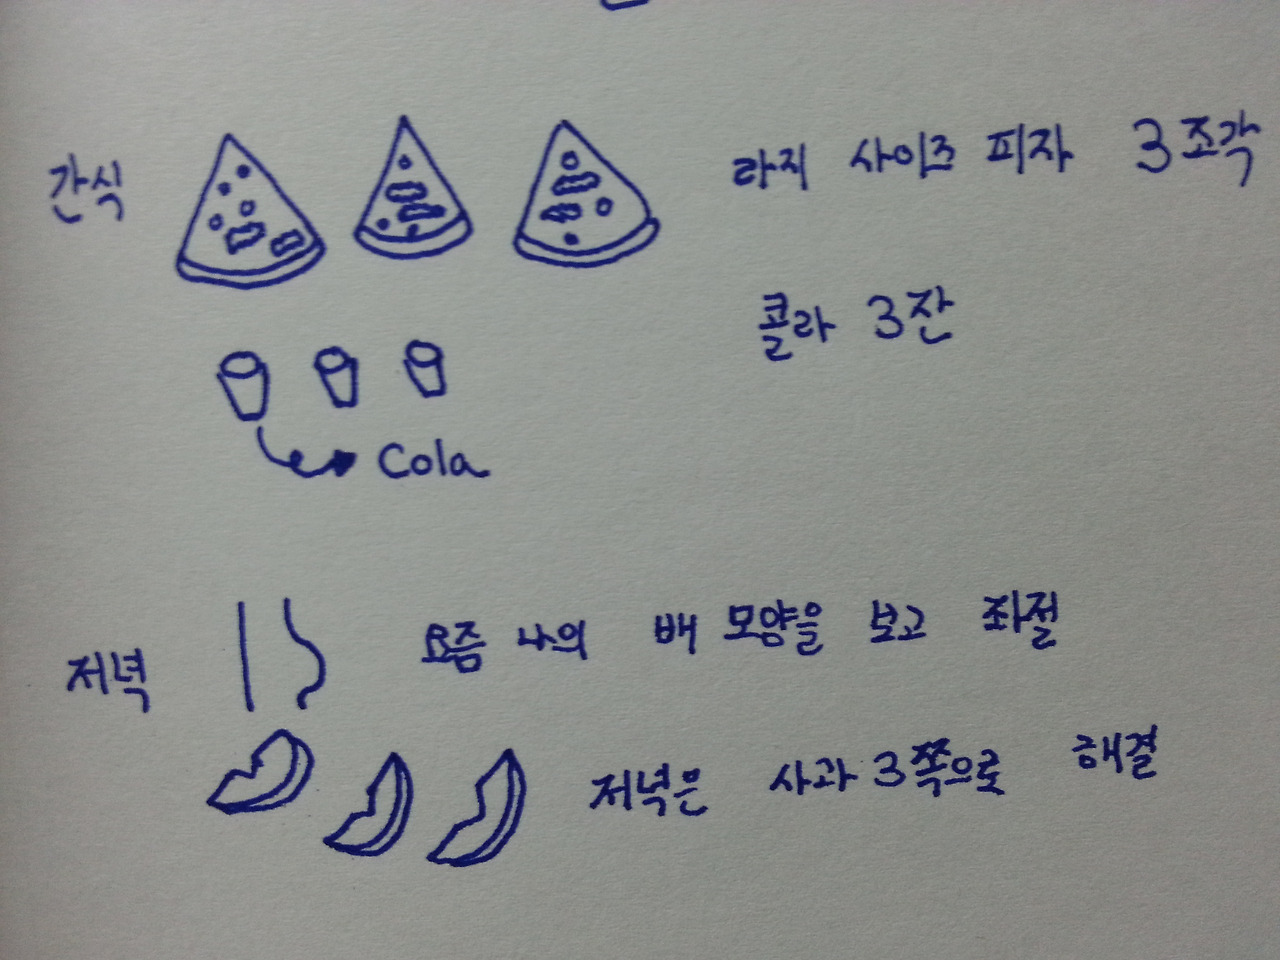 간식
라지 사이즈 피자 3조각
콜라 3잔
Cola
저녁
요즘 나의 배 모양을 보고 좌절
저녁은 사과 3쪽으로 해결